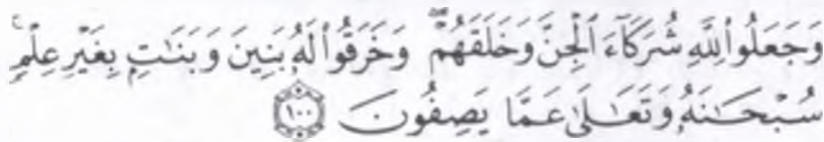 وَجَعَلُوا۟ لِلَّهِ شُرَكَآءَ ٱلْجِنَّ وَخَلَقَهُمْ ۖ وَخَرَقُوا۟ لَهُۥ بَنِينَ وَبَنَـٰتٍۭ بِغَيْرِ عِلْمٍۢ ۚ
سُبْحَـٰنَهُۥ وَتَعَـٰلَىٰ عَمَّا يَصِفُونَ ۝١٠٠